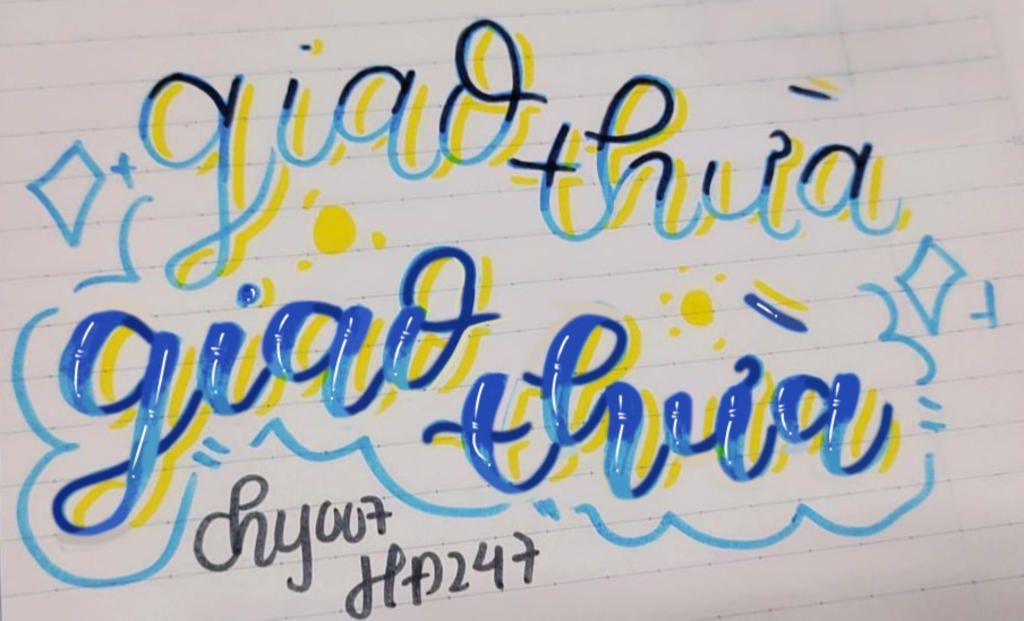 giao thừa
giao thừa
chy007
HĐ247